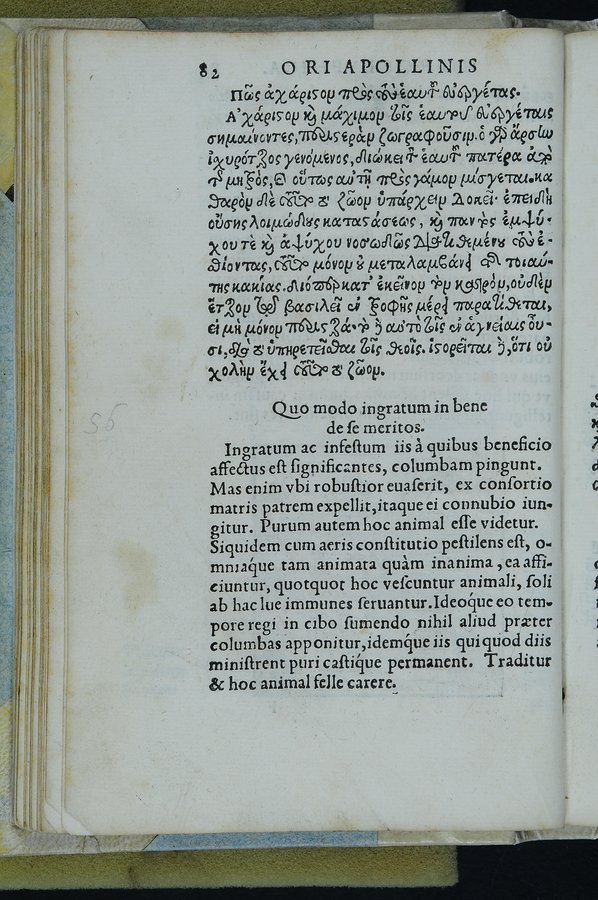 82 ORI APOLLINIS
Πῶς ἀχάριστον πρὸς τοὺς ἑαυτῶν εὐεργέτας.
Ἀχάριστον καὶ μάχιμον τοῖς ἑαυτοῦ εὐεργέταις
σημαίνοντες, περιστερὰν ζωγραφοῦσιν. ὁ γὰρ ἄρσην
ἰσχυρότερος γενόμενος, διώκει τὸν ἑαυτοῦ πατέρα ἀπὸ
τῆς μητρὸς, καὶ οὕτως αὐτῇ πρὸς γάμον μίσγεται. κα
θαρὸν δὲ τοῦτο τὸ ζῶον ὑπάρχειν δοκεῖ· ἐπειδὴ
οὔσης λοιμώδους καταστάσεως, καὶ παντὸς ἐμψύ-
χου τὲ καὶ ἀψύχου νοσωδῶς διατιθεμένου τοὺς ἐ-
σθίοντας, τοῦτο μόνον οὐ μεταλαμβάνει τῆς τοιαύ-
της κακίας. διόπερ κατ' ἐκεῖνον τὸν καιρὸν, οὐδὲν
ἕτερον τῷ βασιλεῖ ἐν τροφῆς μέρει παρατίθεται,
εἰ μὴ μόνον περιστερά. τὸ δὲ αὐτὸ τοῖς ἐν ἁγνείαις οὖ-
σι, διὰ τὸ ὑπηρετεῖσθαι τοῖς θεοῖς. ἱστορεῖται δὲ, ὅτι οὐ
χολὴν ἔχει τοῦτο τὸ ζῶον.
Quo modo ingratum in bene
de se meritos.
Ingratum ac infestum iis à quibus beneficio
affectus est significantes, columbam pingunt.
Mas enim vbi robustior euaserit, ex consortio
matris patrem expellit, itaque ei connubio iun-
gitur. Purum autem hoc animal esse videtur.
Siquidem cum aeris constitutio pestilens est, o-
mniaque tam animata quàm inanima, ea affi-
ciuntur, quotquot hoc vescuntur animali, soli
ab hac lue immunes seruantur. Ideoque eo tem-
pore regi in cibo sumendo nihil aliud præter
columbas apponitur, idemque iis qui quod diis
ministrent puri castique permanent. Traditur
& hoc animal felle carere.